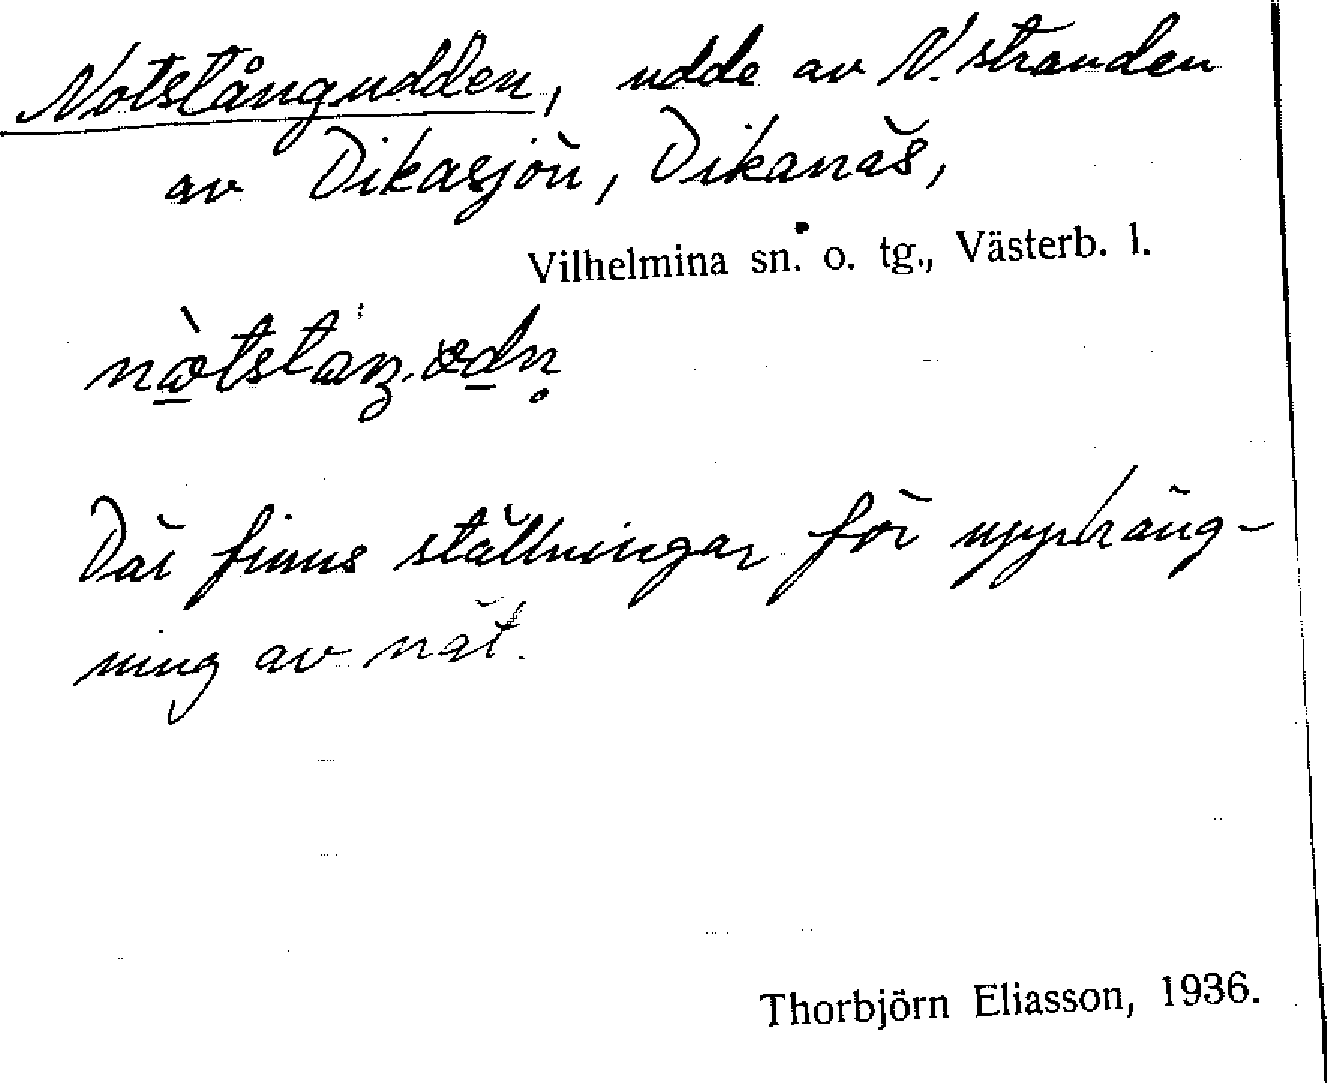 Notstångudden, udde av N. stranden
av Dikasjön, Dikanäs,
Vilhelmina sn. o. tg., Västerb. l.
Där finns ställningar för upphäng-
ning av nät.
Thorbjörn Eliasson, 1936.